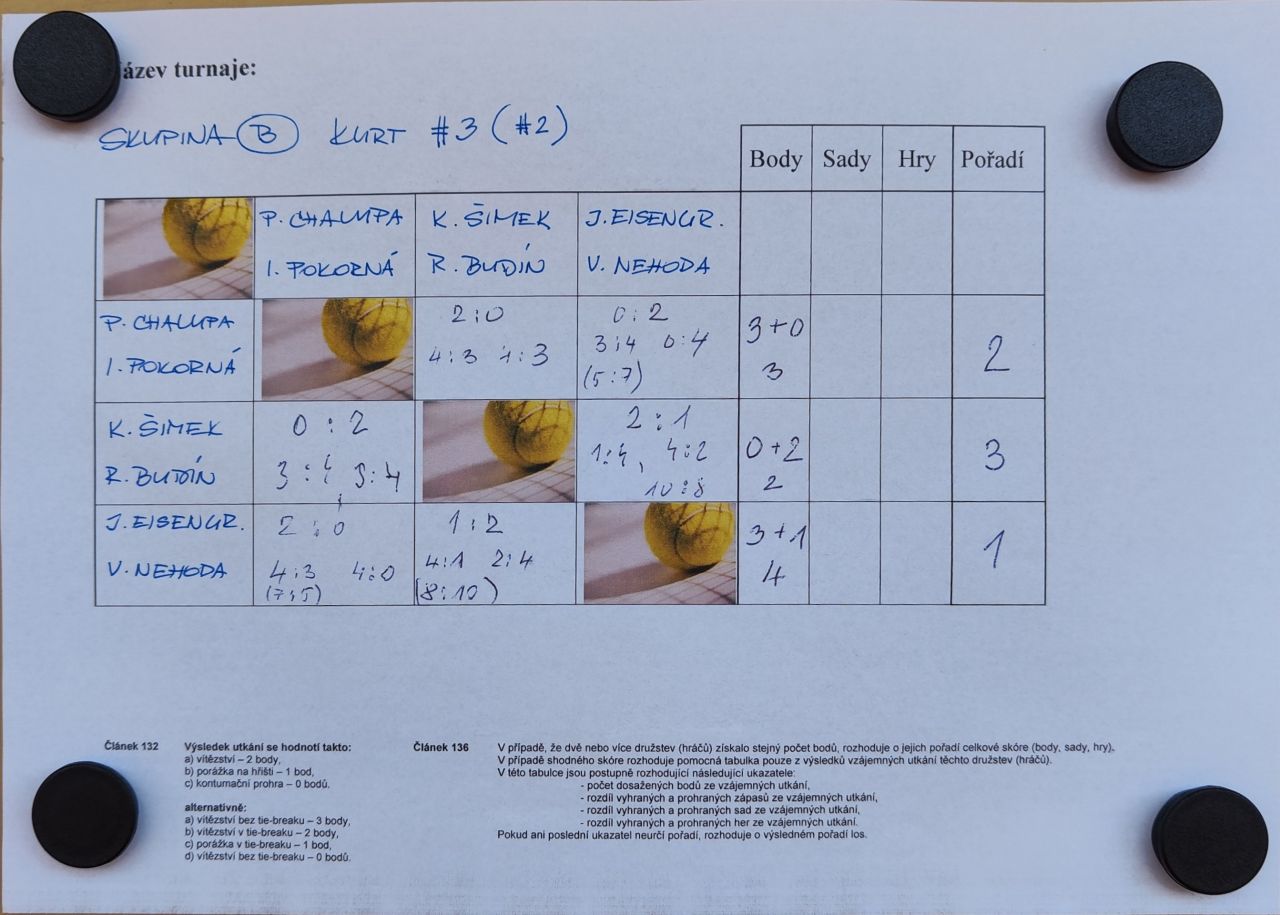 ázev turnaje:
SKUPINA B KURT #3 (#2)
Body Sady Hry Pořadí
P. CHALUPA K. ŠIMEK J. EISENGR.
I. POKORNÁ R. BUDÍN V. NEHODA
P. CHALUPA 2:0 0:2 3+0
I. POKORNÁ 4:3 4:3 3:4 0:4 3 2
(5:7)
K. ŠIMEK 0:2 2:1
R. BUDÍN 3:4 3:4 1:4, 4:2 0+2 3
10:8 2
J. EISENGR. 2:0 1:2 3+1
V. NEHODA 4:3 4:0 4:1 2:4 4 1
(7:5) (8:10)
Článek 132 Výsledek utkání se hodnotí takto:
a) vítězství – 2 body,
b) porážka na hřišti – 1 bod,
c) kontumační prohra – 0 bodů.
alternativně:
a) vítězství bez tie-breaku – 3 body,
b) vítězství v tie-breaku – 2 body,
c) porážka v tie-breaku – 1 bod,
d) vítězství bez tie-breaku – 0 bodů.
Článek 136 V případě, že dvě nebo více družstev (hráčů) získalo stejný počet bodů, rozhoduje o jejich pořadí celkové skóre (body, sady, hry).
V případě shodného skóre rozhoduje pomocná tabulka pouze z výsledků vzájemných utkání těchto družstev (hráčů).
V této tabulce jsou postupně rozhodující následující ukazatele:
- počet dosažených bodů ze vzájemných utkání,
- rozdíl vyhraných a prohraných zápasů ze vzájemných utkání,
- rozdíl vyhraných a prohraných sad ze vzájemných utkání,
- rozdíl vyhraných a prohraných her ze vzájemných utkání.
Pokud ani poslední ukazatel neurčí pořadí, rozhoduje o výsledném pořadí los.